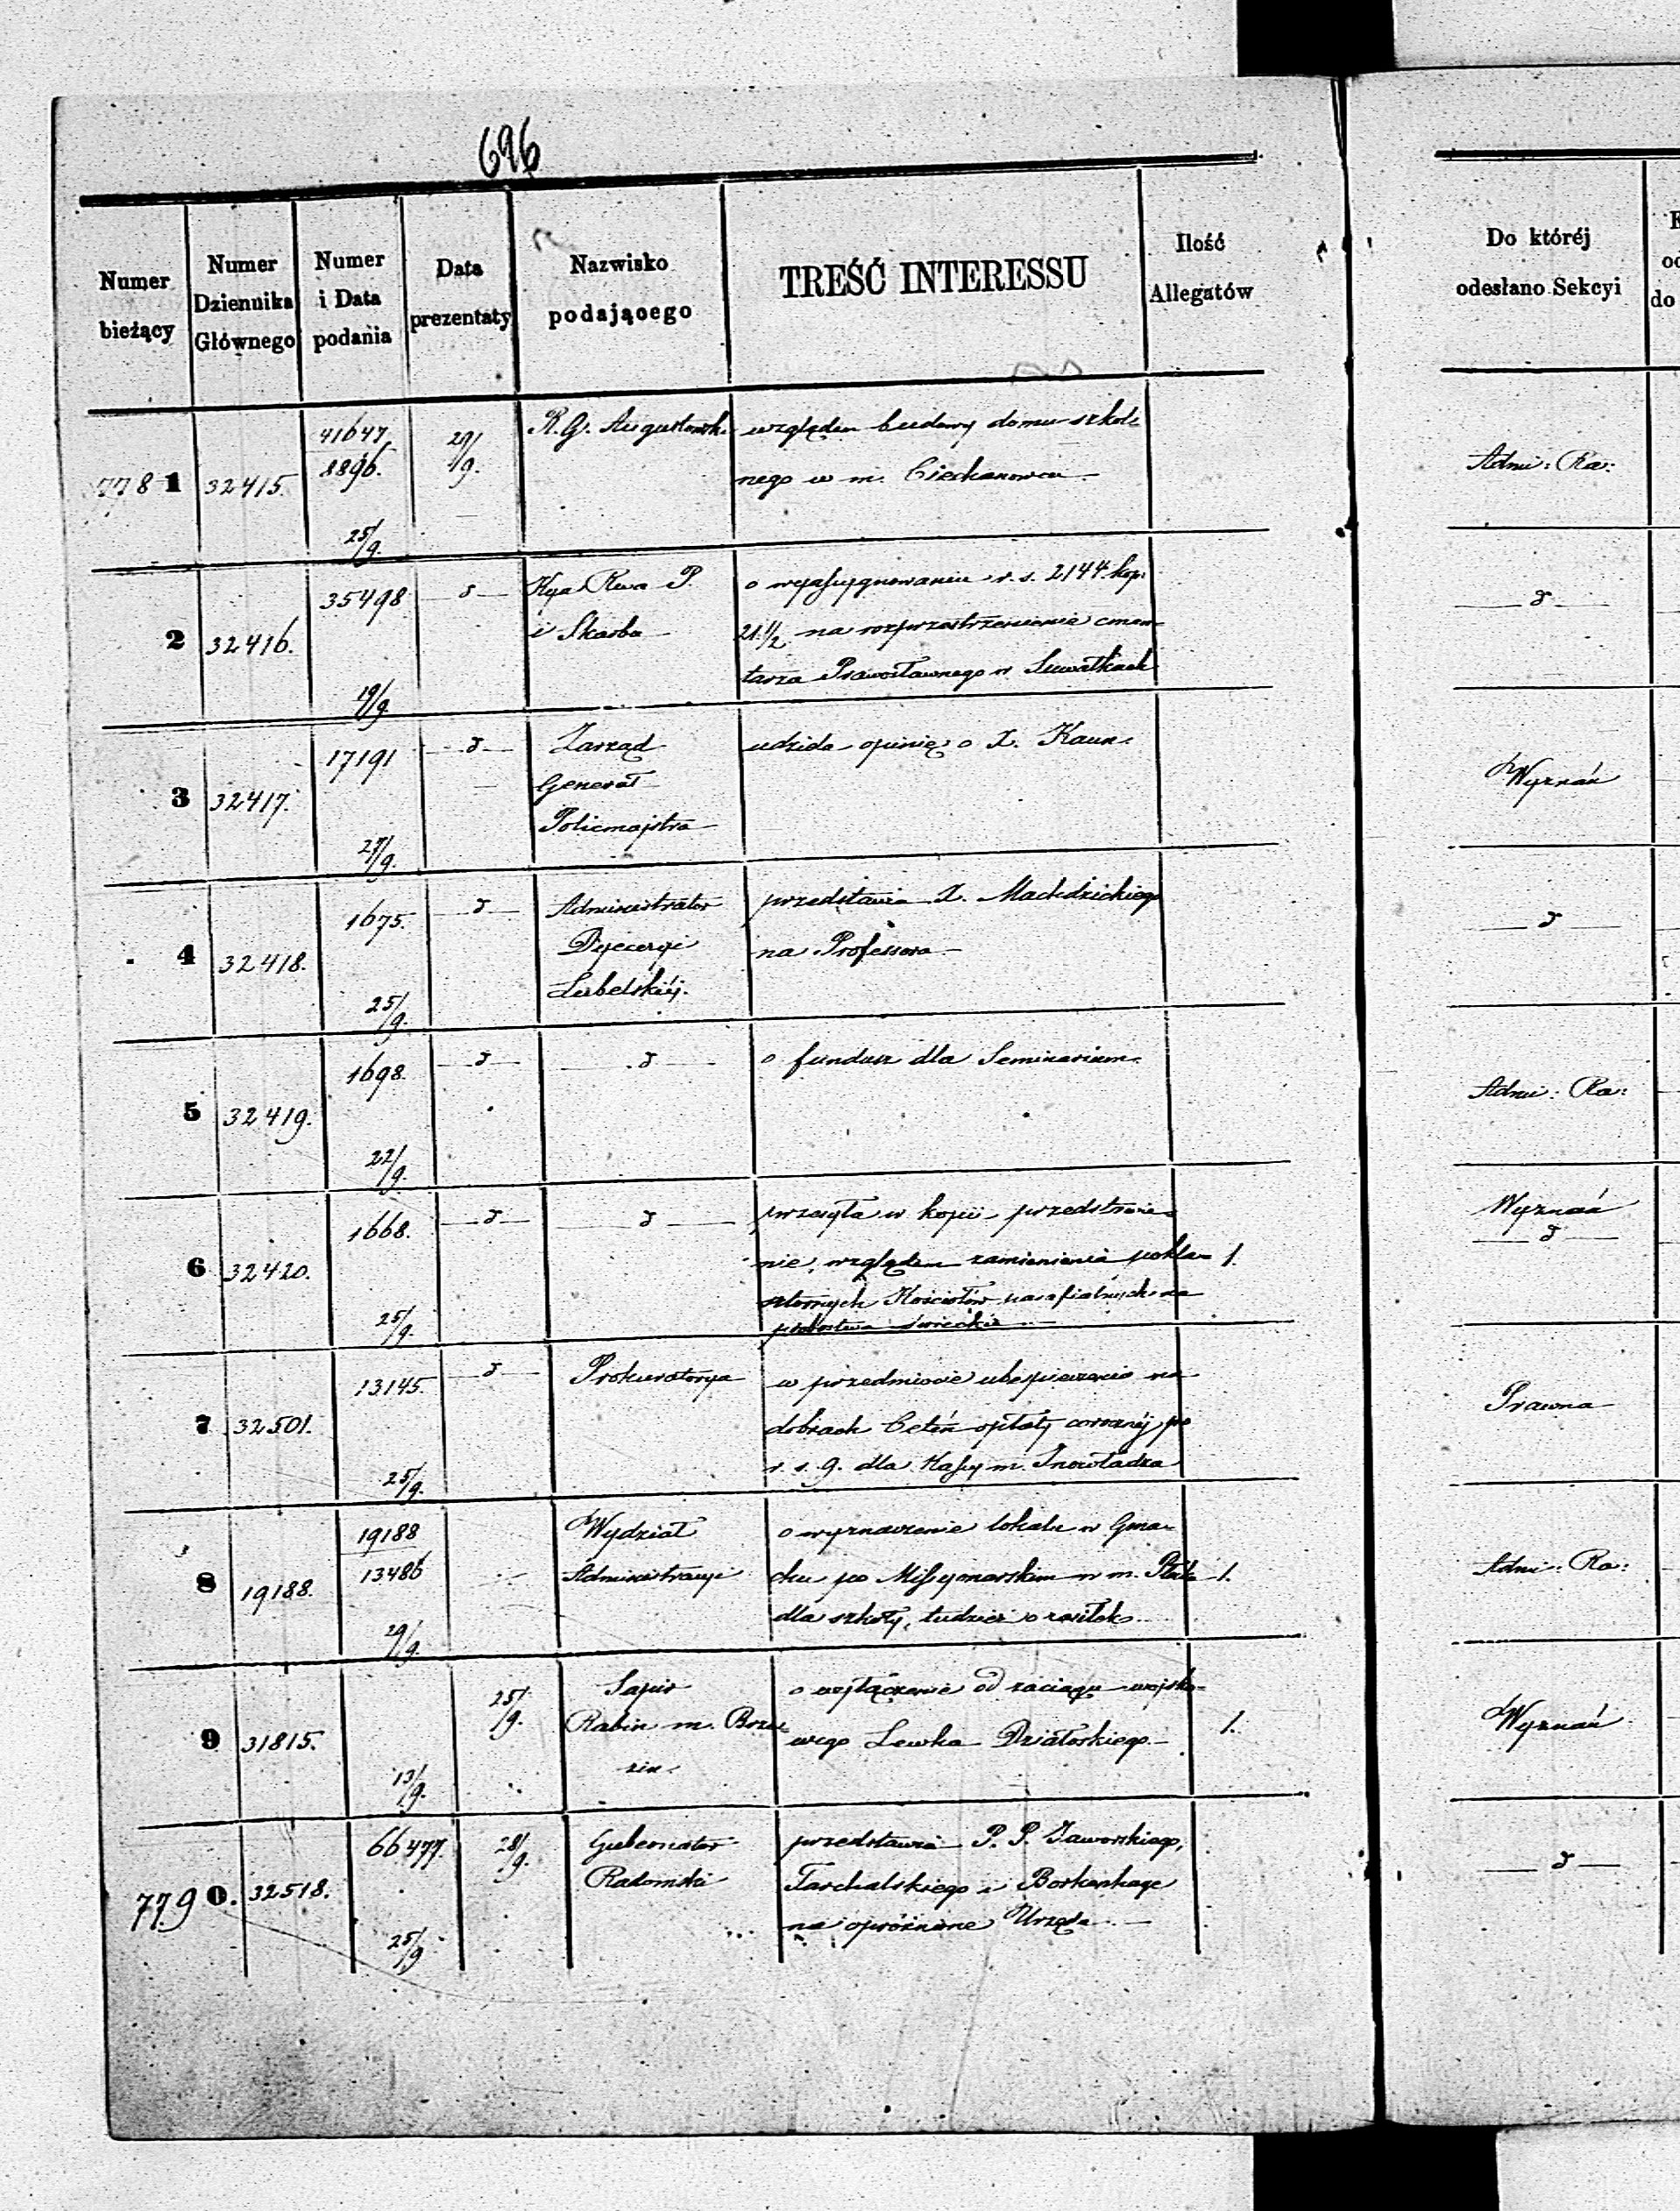 696
Numer bieżący
Numer Dziennika Głównego
Numer i Data podania
Data prezentaty
Nazwisko podającego
TREŚĆ INTERESSU
Ilość Allegatów
Do któréj odesłano Sekcyi
7781 32415. 41647 8896. 25/9. 29/9. R. G. Augustowsk. względem budowy domu szkol-
nego w m. Ciechanowcu Admi: Ra:
2 32416. 35498 19/9. d Kya Rwa P. o wyasygnowanie r. s. 2144 kop:
i Skarbu 21 1/2 na rozprzestrzenienie cmen-
tarza Prawosławnego w Suwałkach d
3 32417. 17191 27/9. d Zarząd udziela opinię o X. Kaun.
Generał
Policmajstra Wyznań
4 32418. 1675. 25/9. d Administrator przedstawia X.
Dyecezyi na Professora
Lubelskiéj. d
5 32419. 1698. 22/9. d d o fundusz dla Seminarium. Admi: Ra:
6 32420. 1668. 25/9. d d przesyła w kopii przedstawie-
nie, względem zamienienia pokla- 1.
sztornych Kościołów parafialnych na
probostwa świeckie Wyznań d
7 32501. 13145. 25/9. d Prokuratorya w przedmiocie ubezpieczenia na
dobrach opłaty corocznéj po
r. s. 9. dla Kasy m. Inowłodza Prawna
8 19188. 19188 13486 29/9. Wydział o wyznaczenie lokalu w Gma-
Administracyi chu po Missyonarskim w m. 1.
dla szkoły, tudzież o zasiłek Admi: Ra:
9 31815. 13/9. 25/9. Sapir o wyłączenie od zaciągu wojsko-
Rabin m. Brze- wego Lewka Działoskiego. 1.
zin. Wyznań
7790. 32518. 66477. 25/9 28/9. Gubernator przedstawia P. P. Jaworskiego,
Radomski Tarchalskiego i Borkenhage
na opróżnione Urzęda d